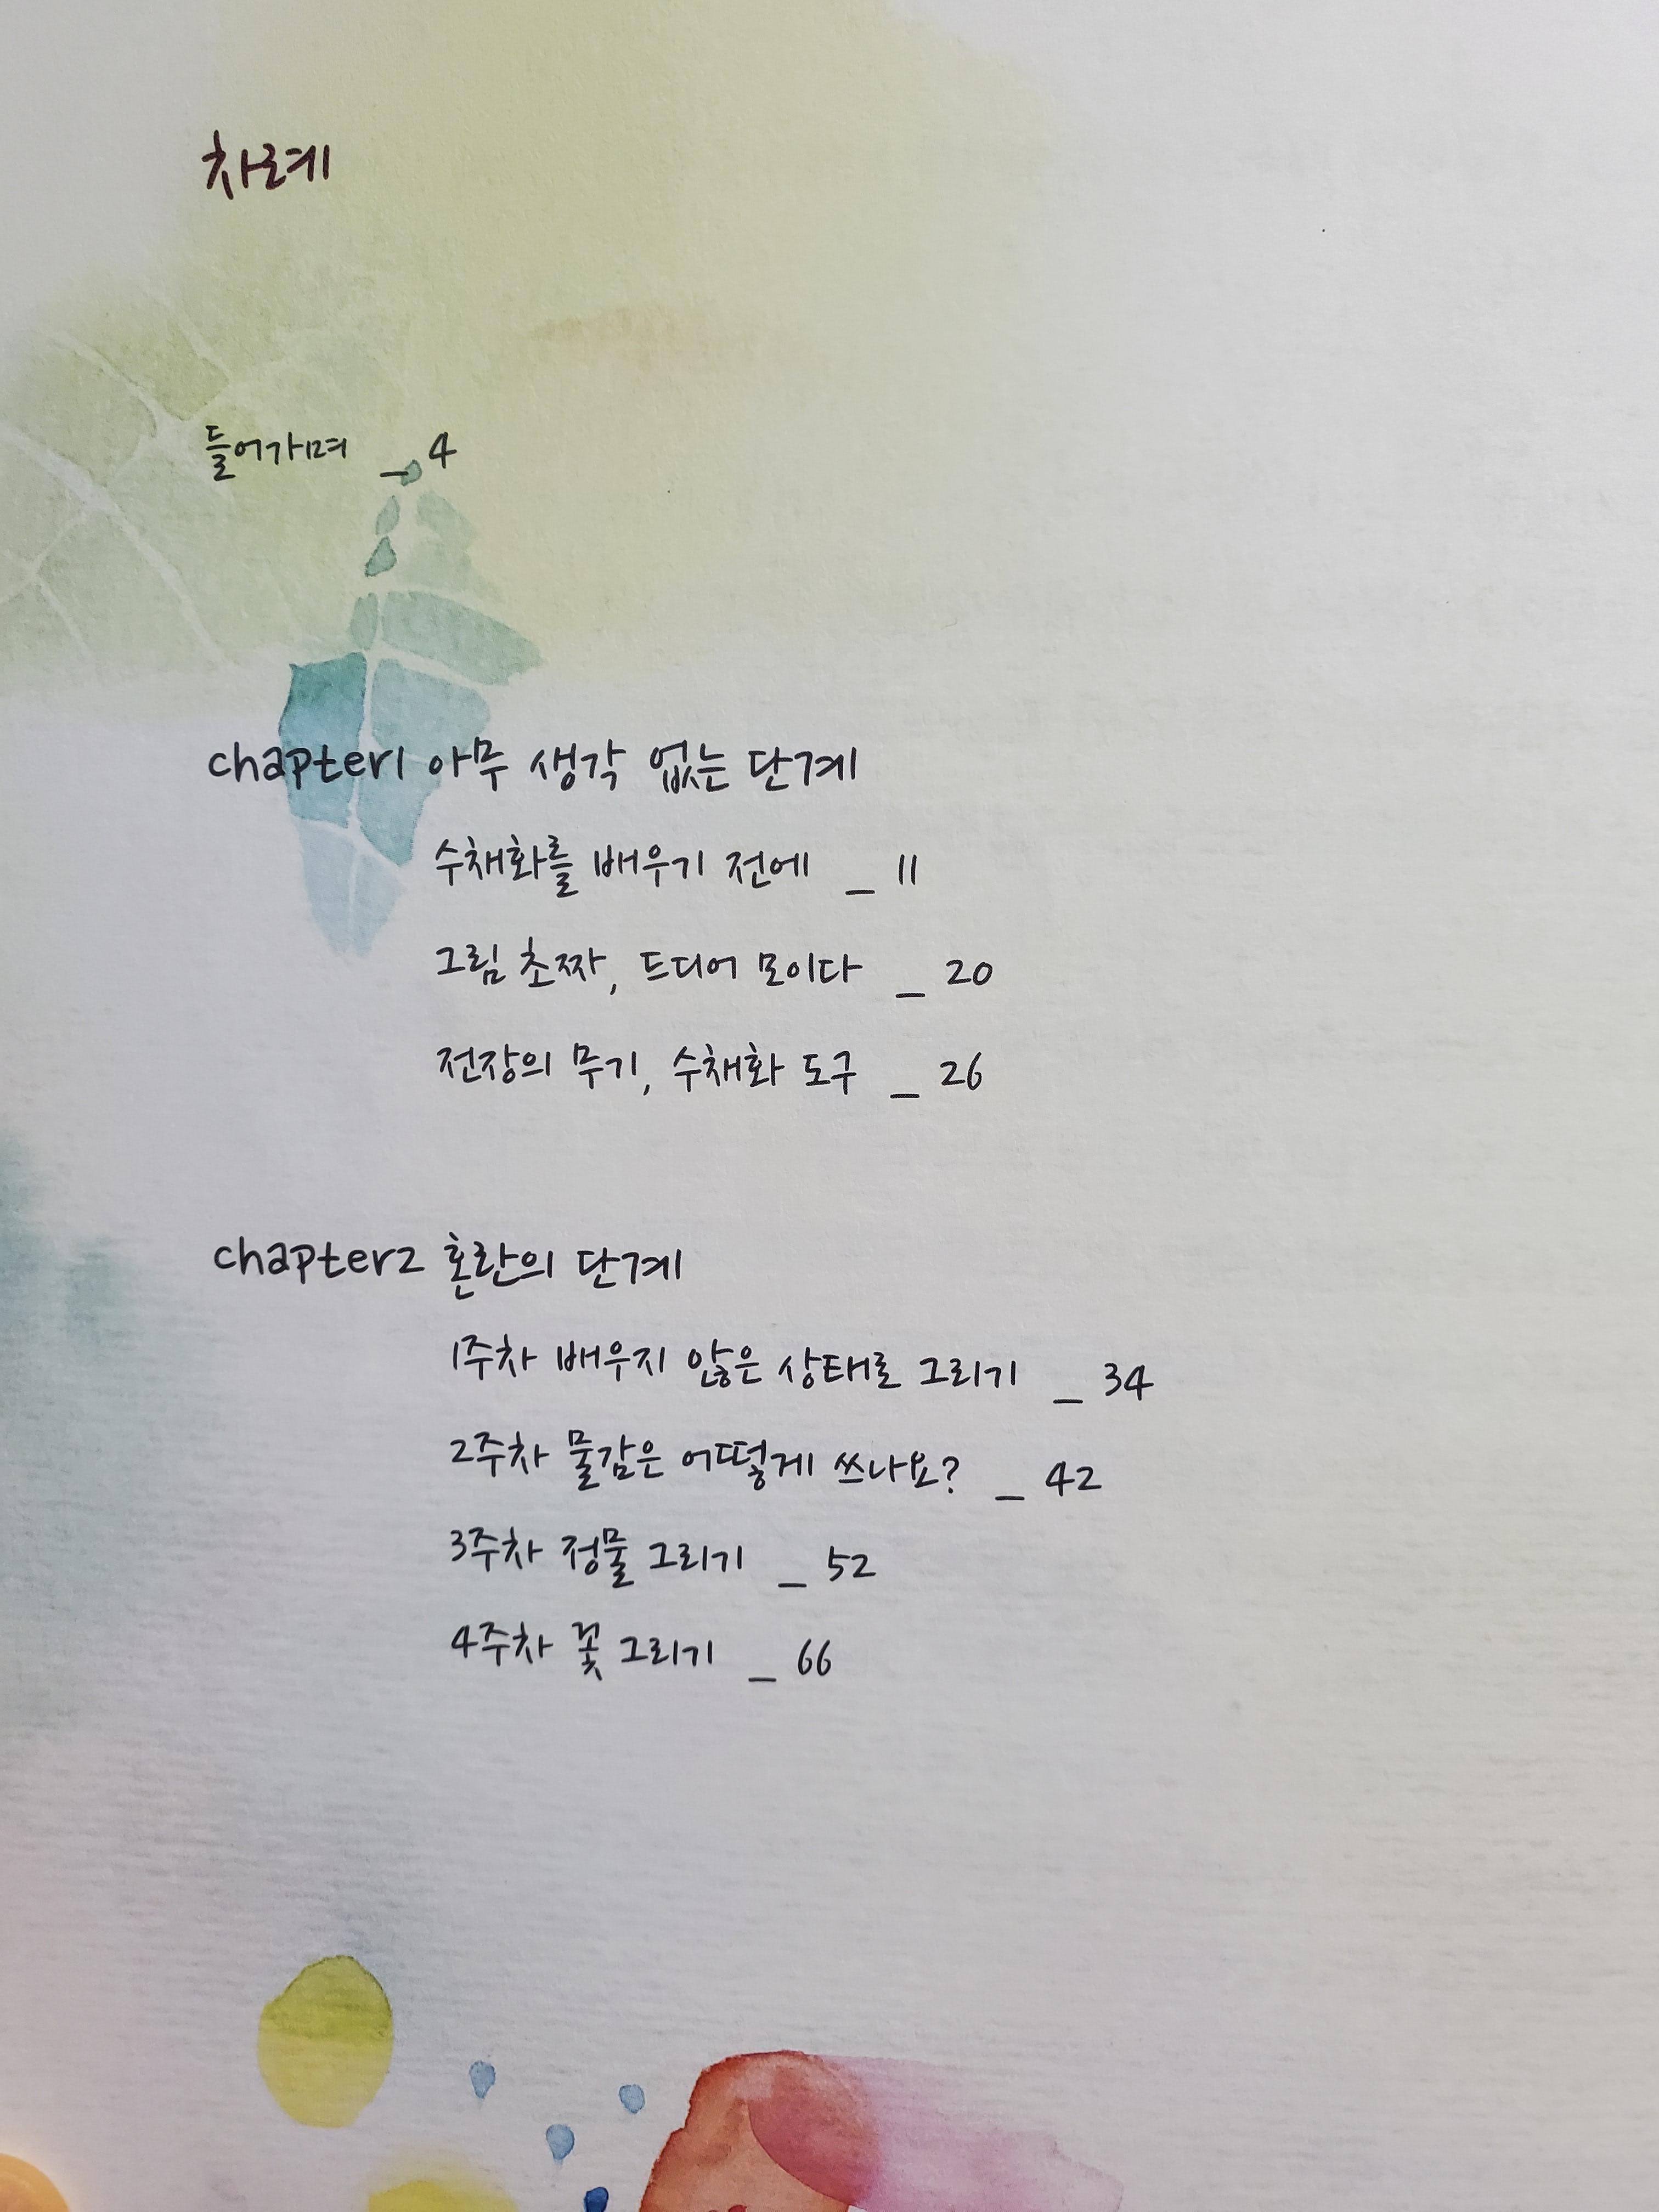 차례
들어가며 _ 4
chapter1 아무 생각 없는 단계
수채화를 배우기 전에 _ 11
그림 초짜, 드디어 모이다 _ 20
전장의 무기, 수채화 도구 _ 26
chapter2 혼란의 단계
1주차 배우지 않은 상태로 그리기 _ 34
2주차 물감은 어떻게 쓰나요? _ 42
3주차 정물 그리기 _ 52
4주차 꽃 그리기 _ 66